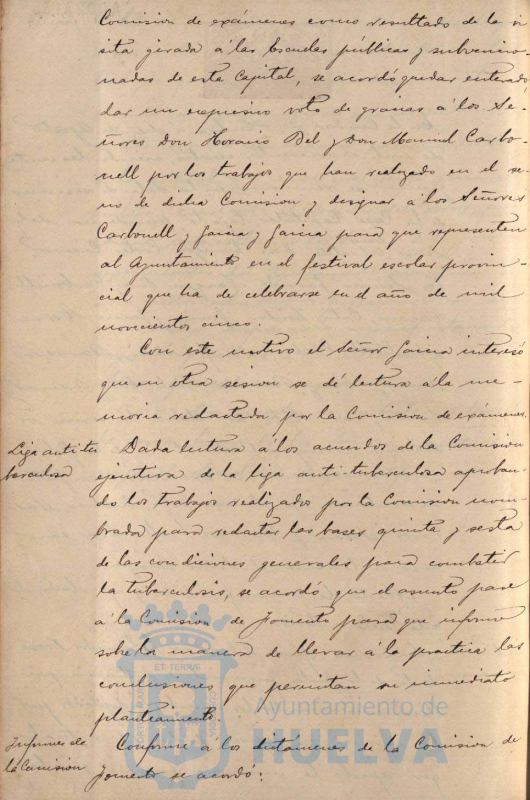 Comision de exámenes como resultado de la vi
sita girada á las Escuelas públicas y subvencio-
nadas de esta Capital, se acordó quedar enterado,
dar un expresivo voto de gracias á los Se-
ñores Don Horacio Bel y Don Manuel Carbo-
nell por los trabajos que han realizado en el se-
no de dicha Comision y designar á los Señores
Carbonell y Garcia y Garcia para que representen
al Ayuntamiento en el festival escolar provin-
cial que ha de celebrarse en el año de mil
novicientos cinco.
Con este motivo el Señor Garcia interesó
que en otra sesion se dé lectura á la me-
moria redactada por la Comision de exámenes.
Liga anti tu
berculosa
Dada lectura á los acuerdos de la Comision
ejecutiva de la liga anti-tuberculosa aproban-
do los trabajos realizados por la Comision nom-
brada para redactar las bases quinta y sesta
de las condiciones generales para combatir
la tuberculosis, se acordó que el asunto pase
á la Comision de Fomento para que informe
sobre la manera de llevar á la practica las
conclusiones que permitan su inmediato
planteamiento.
Informes de
la Comision
Conforme á los dictámenes de la Comision de
Fomento se acordó:
ET TERRÆ
Ayuntamiento de
HUELVA